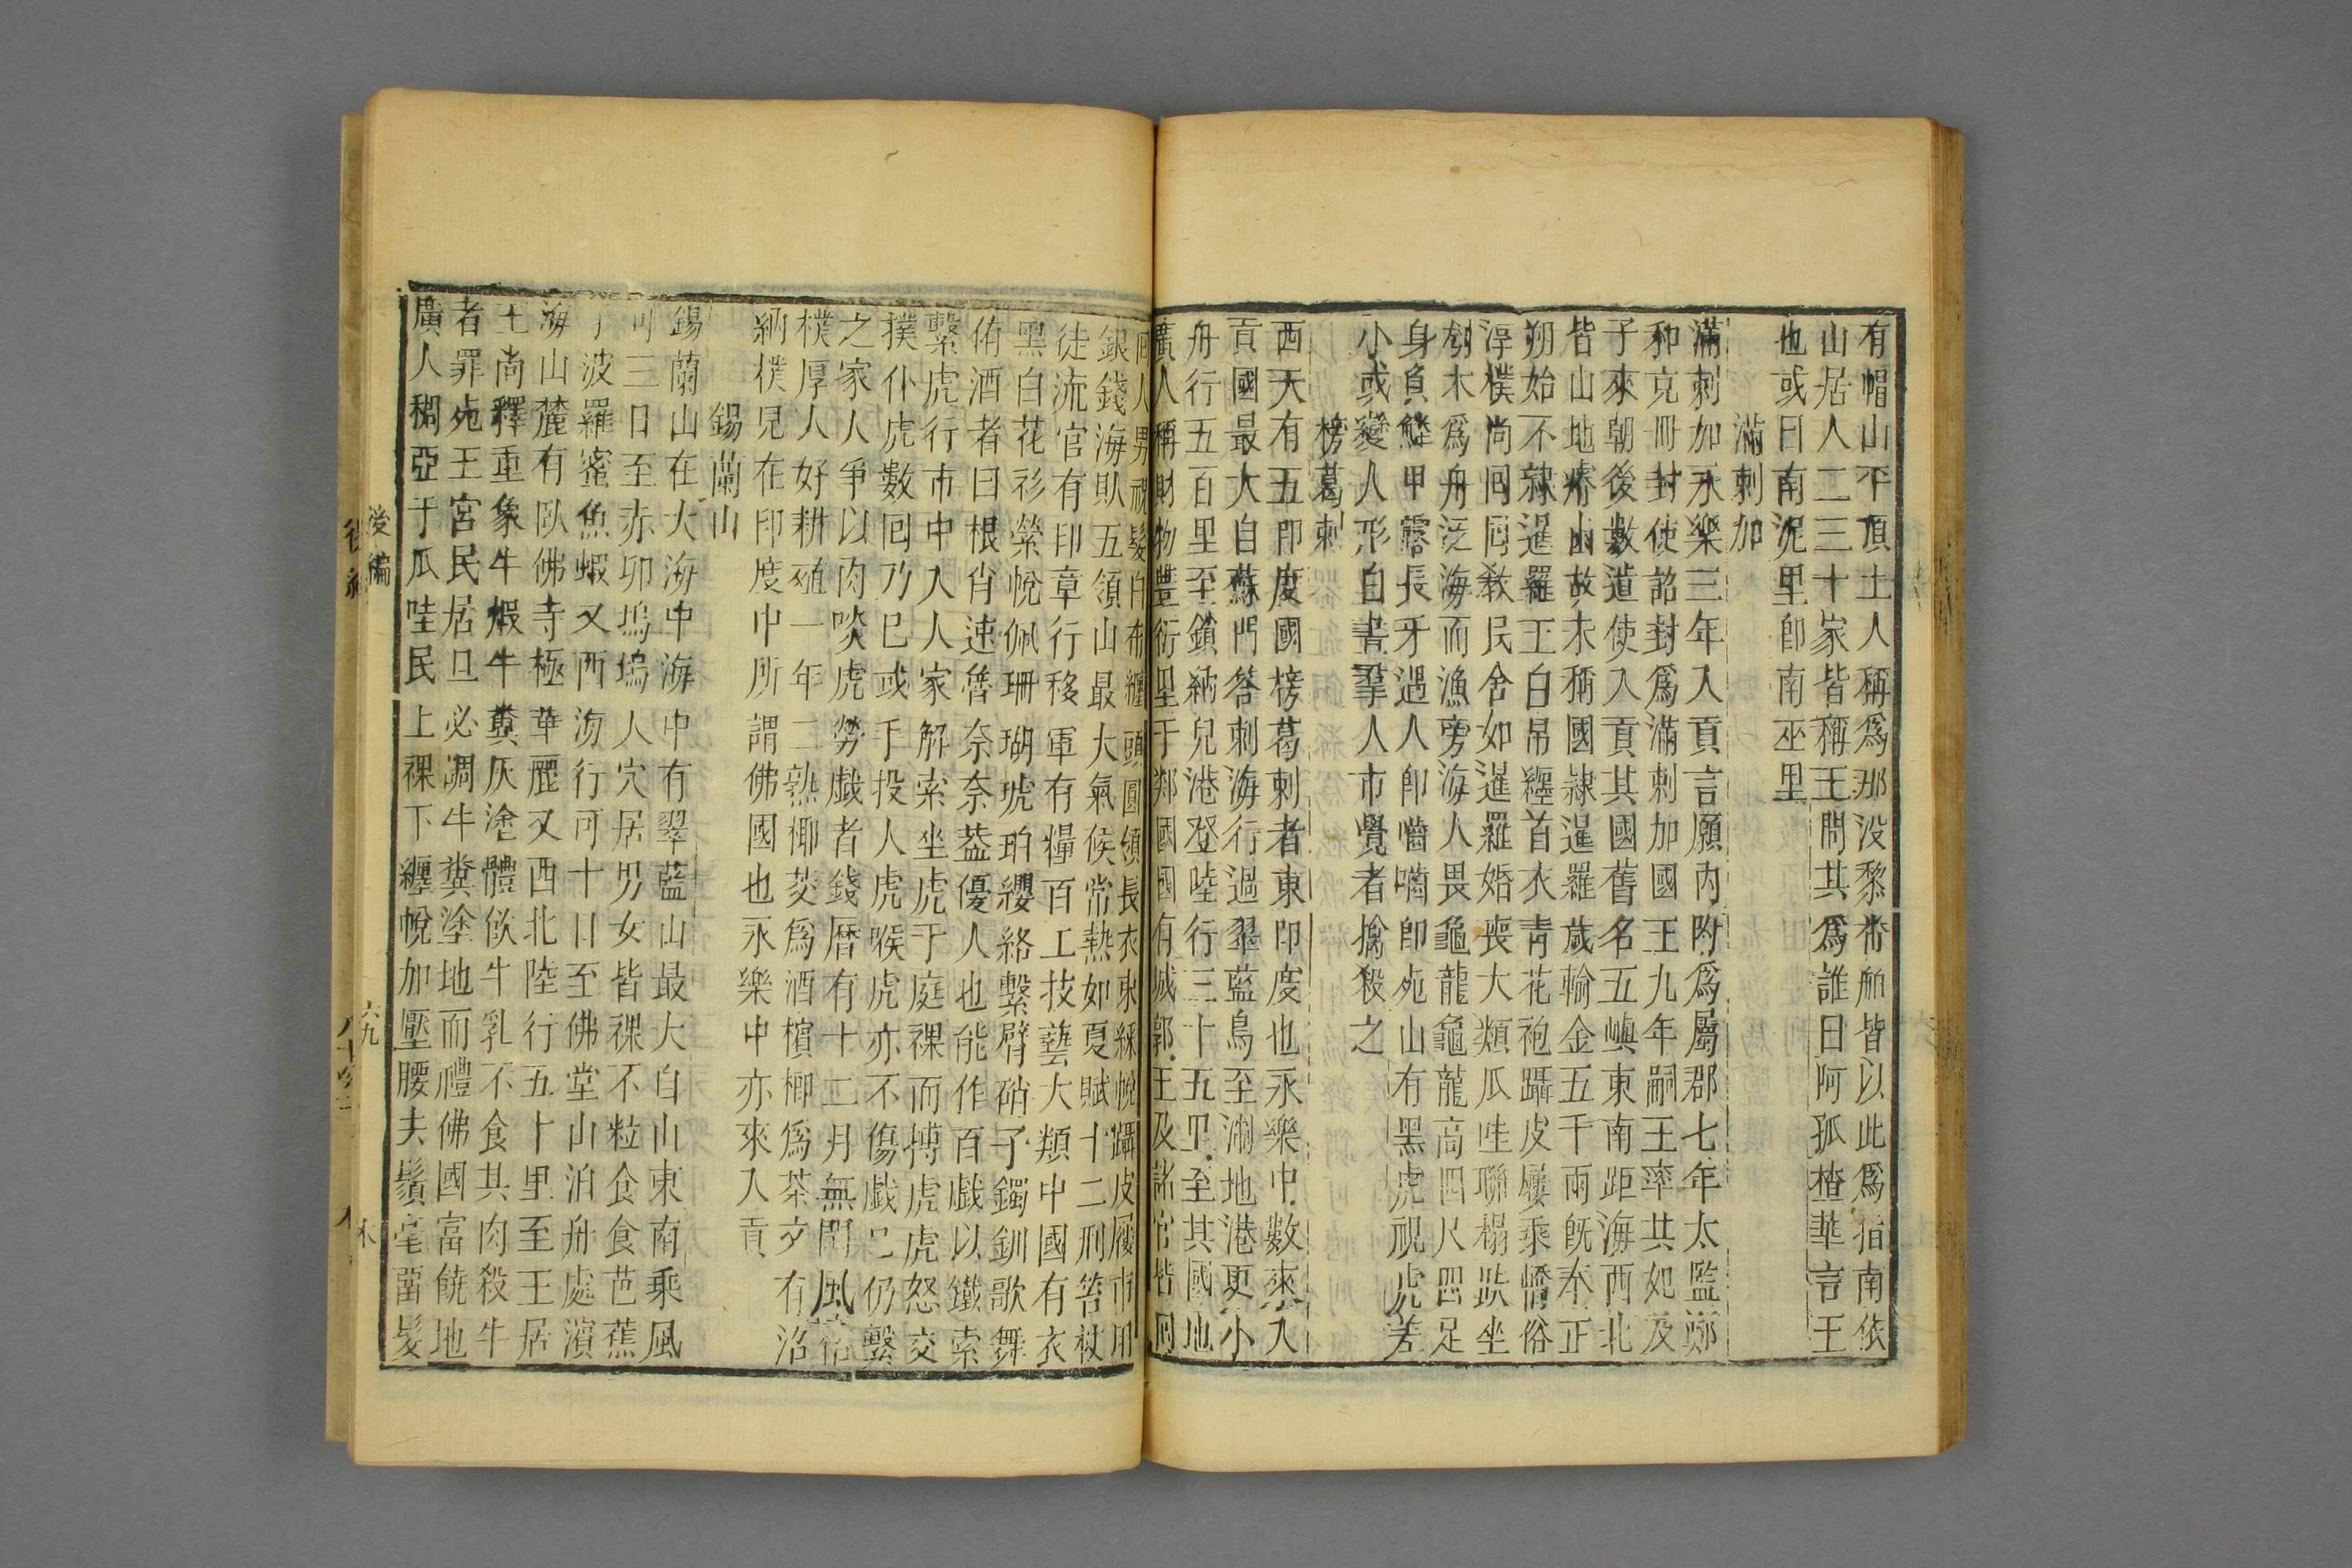 有帽山平頂土人稱爲那没黎畨舶皆以此爲指南依
山居人二三十家皆稱王問其爲誰曰阿孤楂華言王
也或曰南泥里卽南巫里
滿剌加
滿剌加永樂三年入貢言願內附爲屬郡七年太監鄭
和克冊封使詔封爲滿剌加國王九年嗣王率其妃及
子來朝後數道使入貢其國舊名五嶼東南距海西北
皆山地瘠鹵故未稱國隷暹羅歲輸金五千兩旣奉正
朔始不隷暹羅王白帛纒首衣青花袍躡皮屨乘轎俗
淳樸尚囘囘教民舍如暹羅婚喪大類瓜哇聯榻趺坐
刳木爲舟泛海而漁旁海人畏龜龍龜龍高四尺四足
身負鱗甲露長牙遇人卽嚙嚙卽死山有黑虎視虎差
小或變人形白晝羣人市覺者擒殺之
榜葛剌
西天有五印度國榜葛剌者東印度也永樂中數來入
貢國最大自蘇門答剌海行過翠藍島至淛地港更小
舟行五百里至鎖納兒港登陸行三十五里至其國地
廣人稱財物豐衍埋于鄰國國有城郭王及諸官皆囘
囘人男祝髮白布纒頭圓領長衣束綵帨躡皮屨市用
銀錢海䝾五領山最大氣候常熱如夏賦十二刑笞杖
徒流官有印章行移軍有糧百工技藝大類中國有衣
黑白花衫縈帨佩珊瑚琥珀纓絡繫臂硝子鐲釧歌舞
侑酒者曰根肖速魯奈奈葢優人也能作百戲以鐵索
繫虎行市中入人家解索坐虎于庭裸而搏虎虎怒交
撲仆虎數囘乃巳或手投人虎喉虎亦不傷戲巳仍繫
之家人爭以肉啖虎勞戲者錢曆有十二月無閏風俗
樸厚人好耕殖一年二熟椰茭爲酒檳榔爲茶又有沼
納樸兒在印度中所謂佛國也永樂中亦來入貢
錫蘭山
錫蘭山在大海中海中有翠藍山最大自山東南乘風
可三日至赤卯塢塢人穴居男女皆裸不粒食食芭蕉
子波羅蜜魚蝦又西海行可十日至佛堂山泊舟處濱
海山麓有臥佛寺極華麗又西北陸行五十里至王居
王尚釋重象牛煅牛糞灰塗體飲牛乳不食其肉殺牛
者罪死王宮民居旦必凋牛糞塗地而禮佛國富饒地
廣人稠亞于瓜哇民上裸下纒帨加壓腰夫鬚毫留髮
後編
六九
木